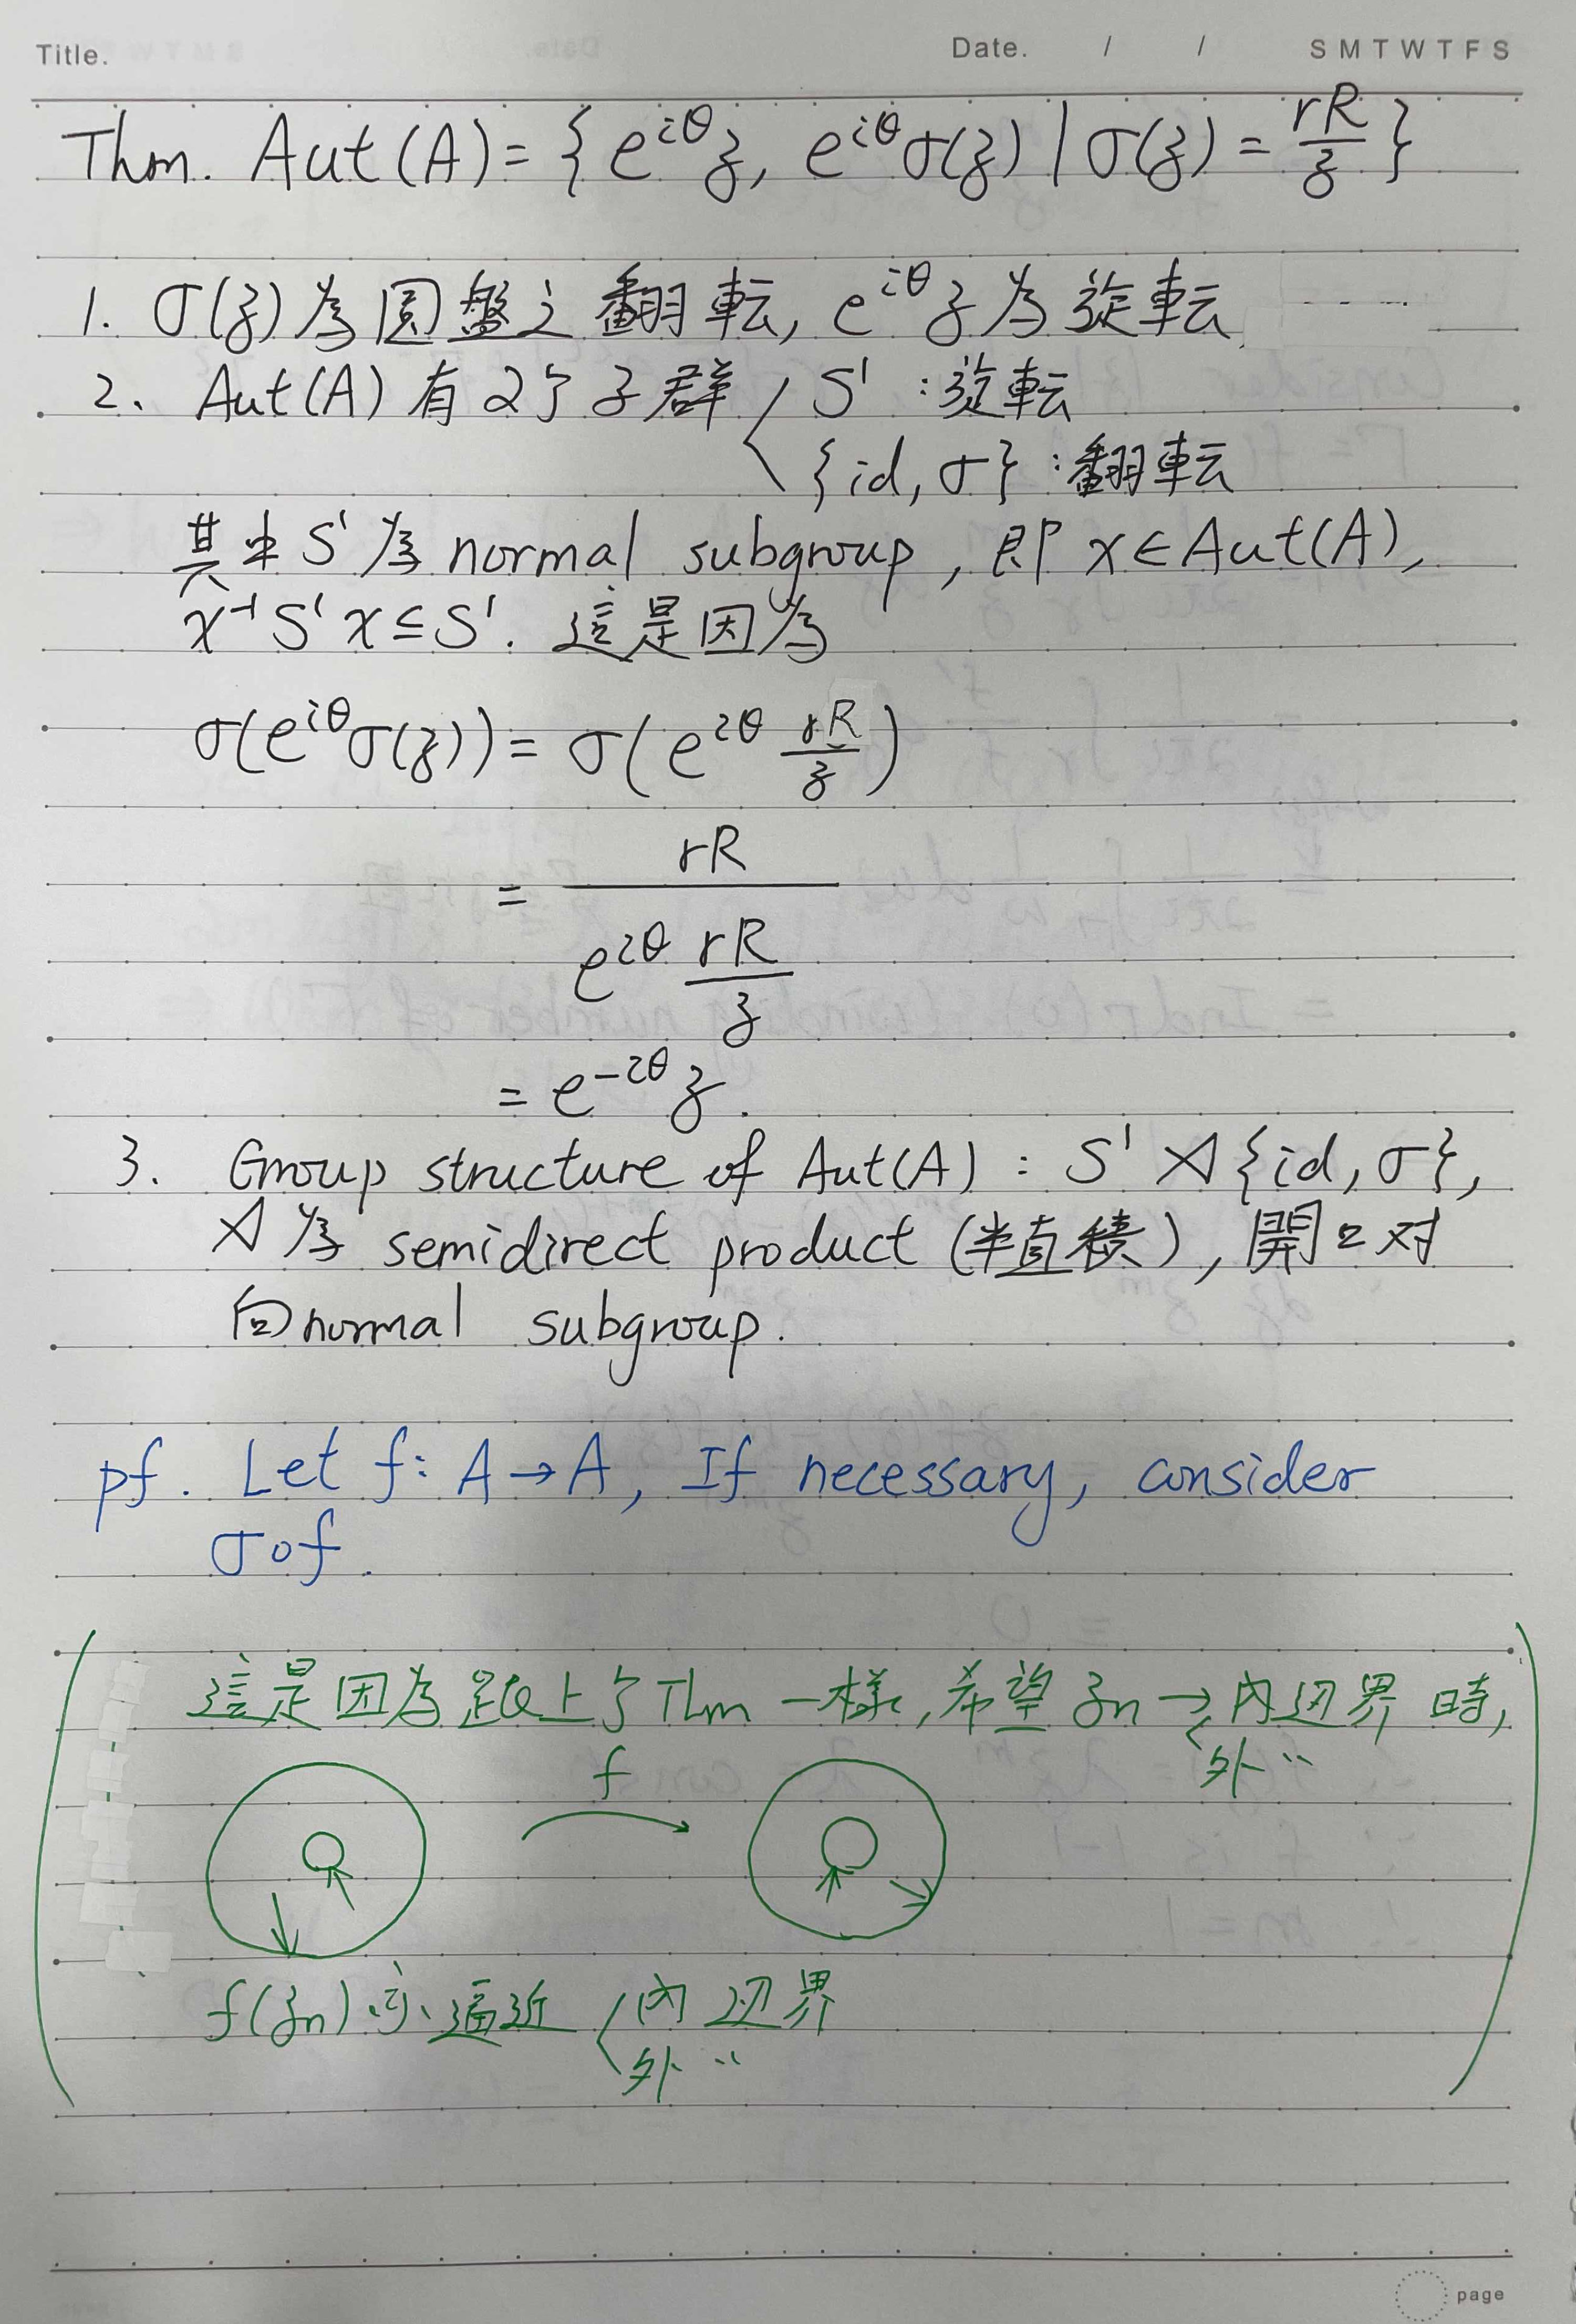 Title.
Date. / / S M T W T F S
Thm. Aut(A) = { e^{iθ}z, e^{iθ}σ(z) | σ(z) = rR/z }
1. σ(z)為圓盤之翻転, e^{iθ}z為旋転.
2. Aut(A)有2个子群 S¹ : 旋転
{id, σ} : 翻転
其中 S¹ 為 normal subgroup, 即 x ∈ Aut(A),
x⁻¹S¹x ⊆ S¹. 這是因為
σ(e^{iθ}σ(z)) = σ(e^{iθ} rR/z)
= rR / (e^{iθ} rR/z)
= e^{-iθ}z.
3. Group structure of Aut(A) : S¹ ⋊ {id, σ},
⋊ 為 semidirect product (半直積), 開口対
向normal subgroup.
pf. Let f: A → A, If necessary, consider
σ∘f.
這是因為跟上个Thm一樣, 希望 zn → 内辺界時,
外〃
f
f(zn)亦逼近 内辺界
外〃
page